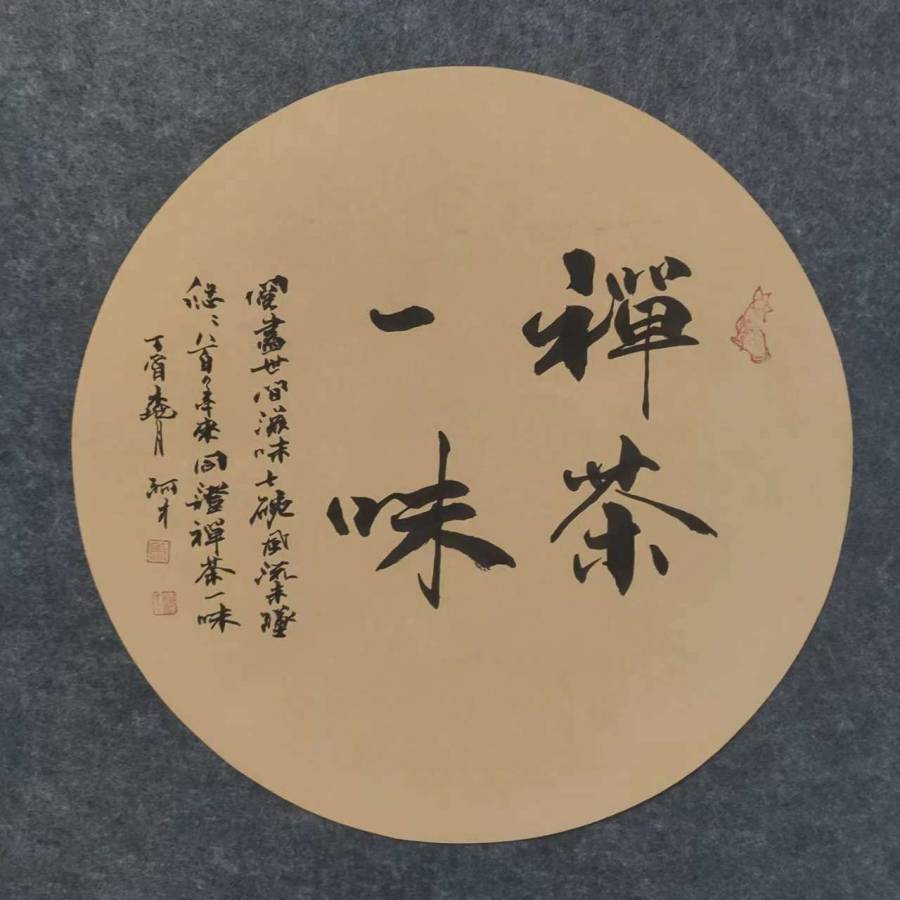 禪茶
一味
閱盡世間滋味七碗風流未墜
悠〻八百多年來同證禪茶一味
丁酉 月